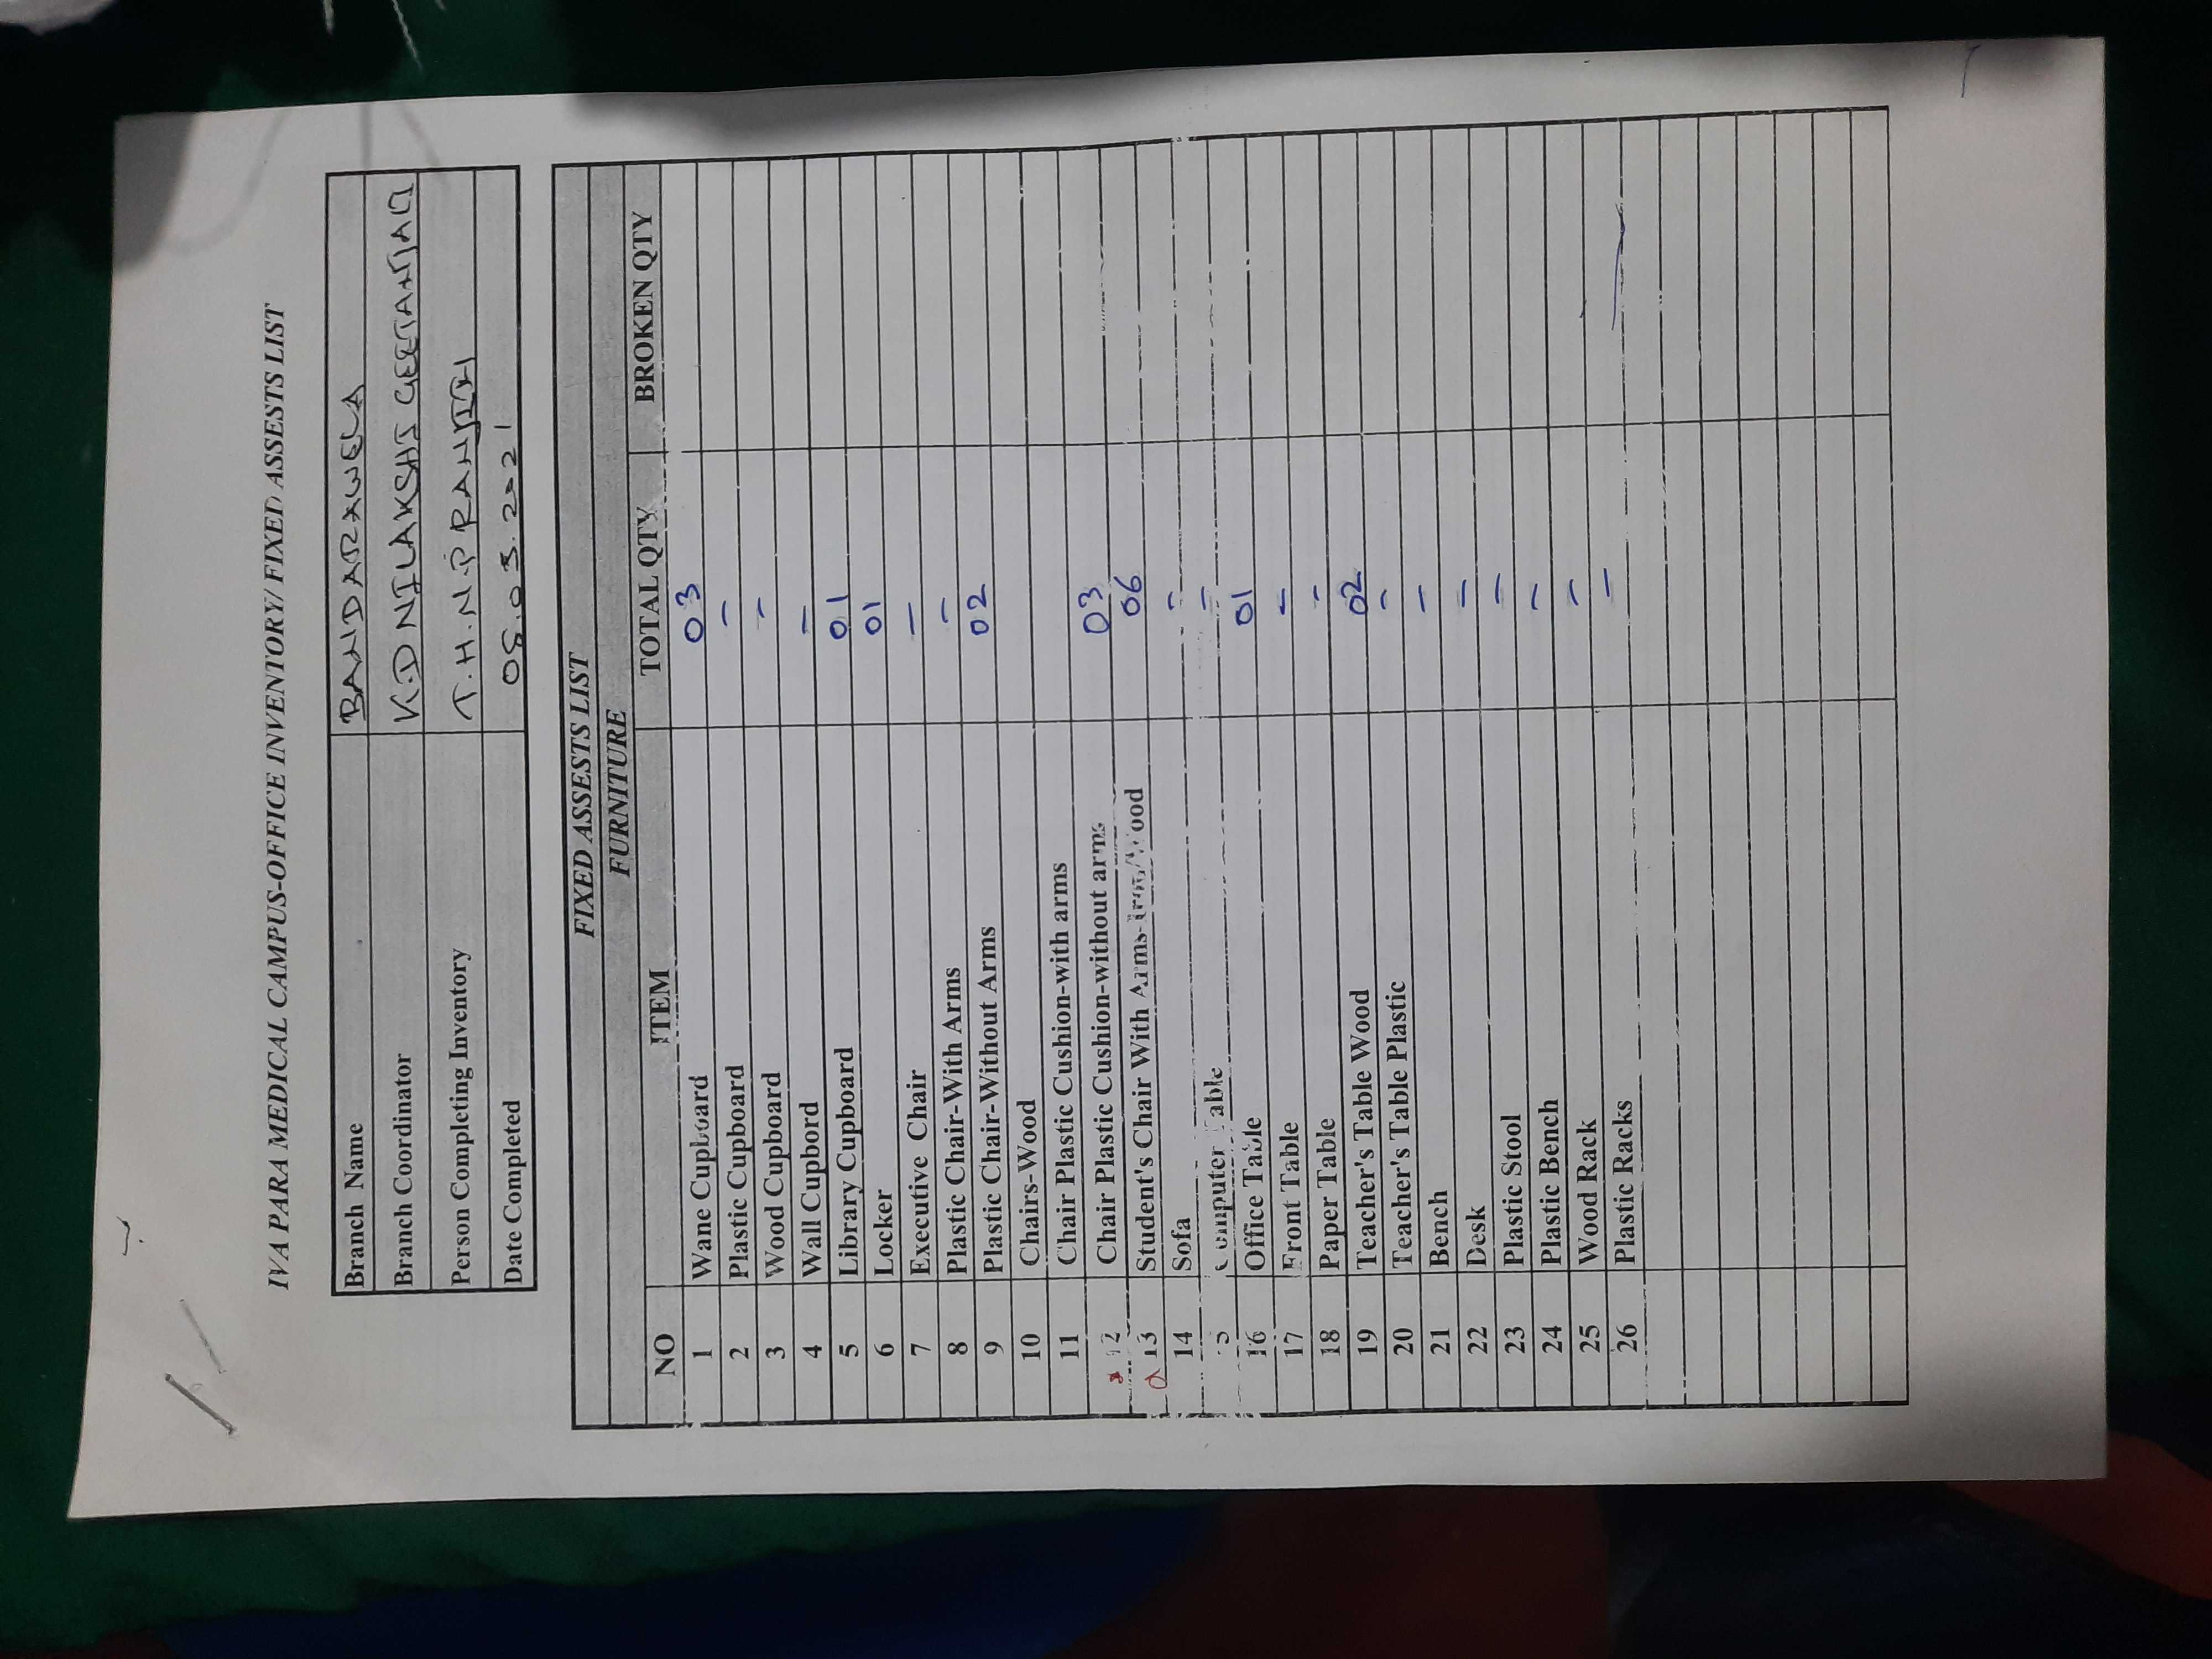 IVA PARA MEDICAL CAMPUS-OFFICE INVENTORY/ FIXED ASSESTS LIST
Branch Name BANDARAWELA
Branch Coordinator K.D NILAKSHI GEETANJALI
Person Completing Inventory T.H.N.P RANJITH
Date Completed 08.03.2021
FIXED ASSESTS LIST
FURNITURE
NO ITEM TOTAL QTY BROKEN QTY
1 Wane Cupboard 03
2 Plastic Cupboard -
3 Wood Cupboard -
4 Wall Cupbord -
5 Library Cupboard 01
6 Locker 01
7 Executive Chair -
8 Plastic Chair-With Arms -
9 Plastic Chair-Without Arms 02
10 Chairs-Wood
11 Chair Plastic Cushion-with arms
12 Chair Plastic Cushion-without arms 03
13 Student's Chair With Arms-Iron/Wood 06
14 Sofa -
15 Computer Table -
16 Office Table 01
17 Front Table -
18 Paper Table -
19 Teacher's Table Wood 02
20 Teacher's Table Plastic -
21 Bench -
22 Desk -
23 Plastic Stool -
24 Plastic Bench -
25 Wood Rack -
26 Plastic Racks -